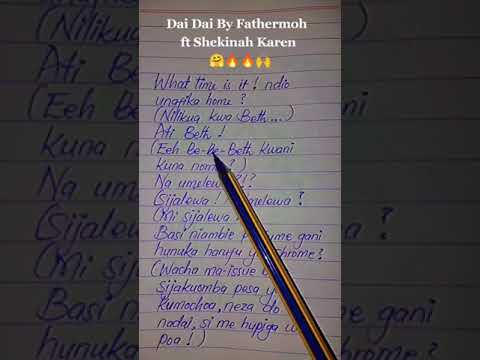 Dai Dai By Fathermoh
ft Shekinah Karen
🤗🔥🔥🙌
What time is it! ndio
unafika home?
(Nilikua kwa Beth...)
Ati Beth!
(Eeh Be-Be-Beth kwani
kuna noma?)
Na umelewa?!?
(Sijalewa! umelewa?
(Mi sijalewa
Basi niambie gani
hunuka harufu chrome?
(Wacha ma-issue
Sijakuomba pesa
kumochoa, neza do
nadai, si me hupiga
poa!)